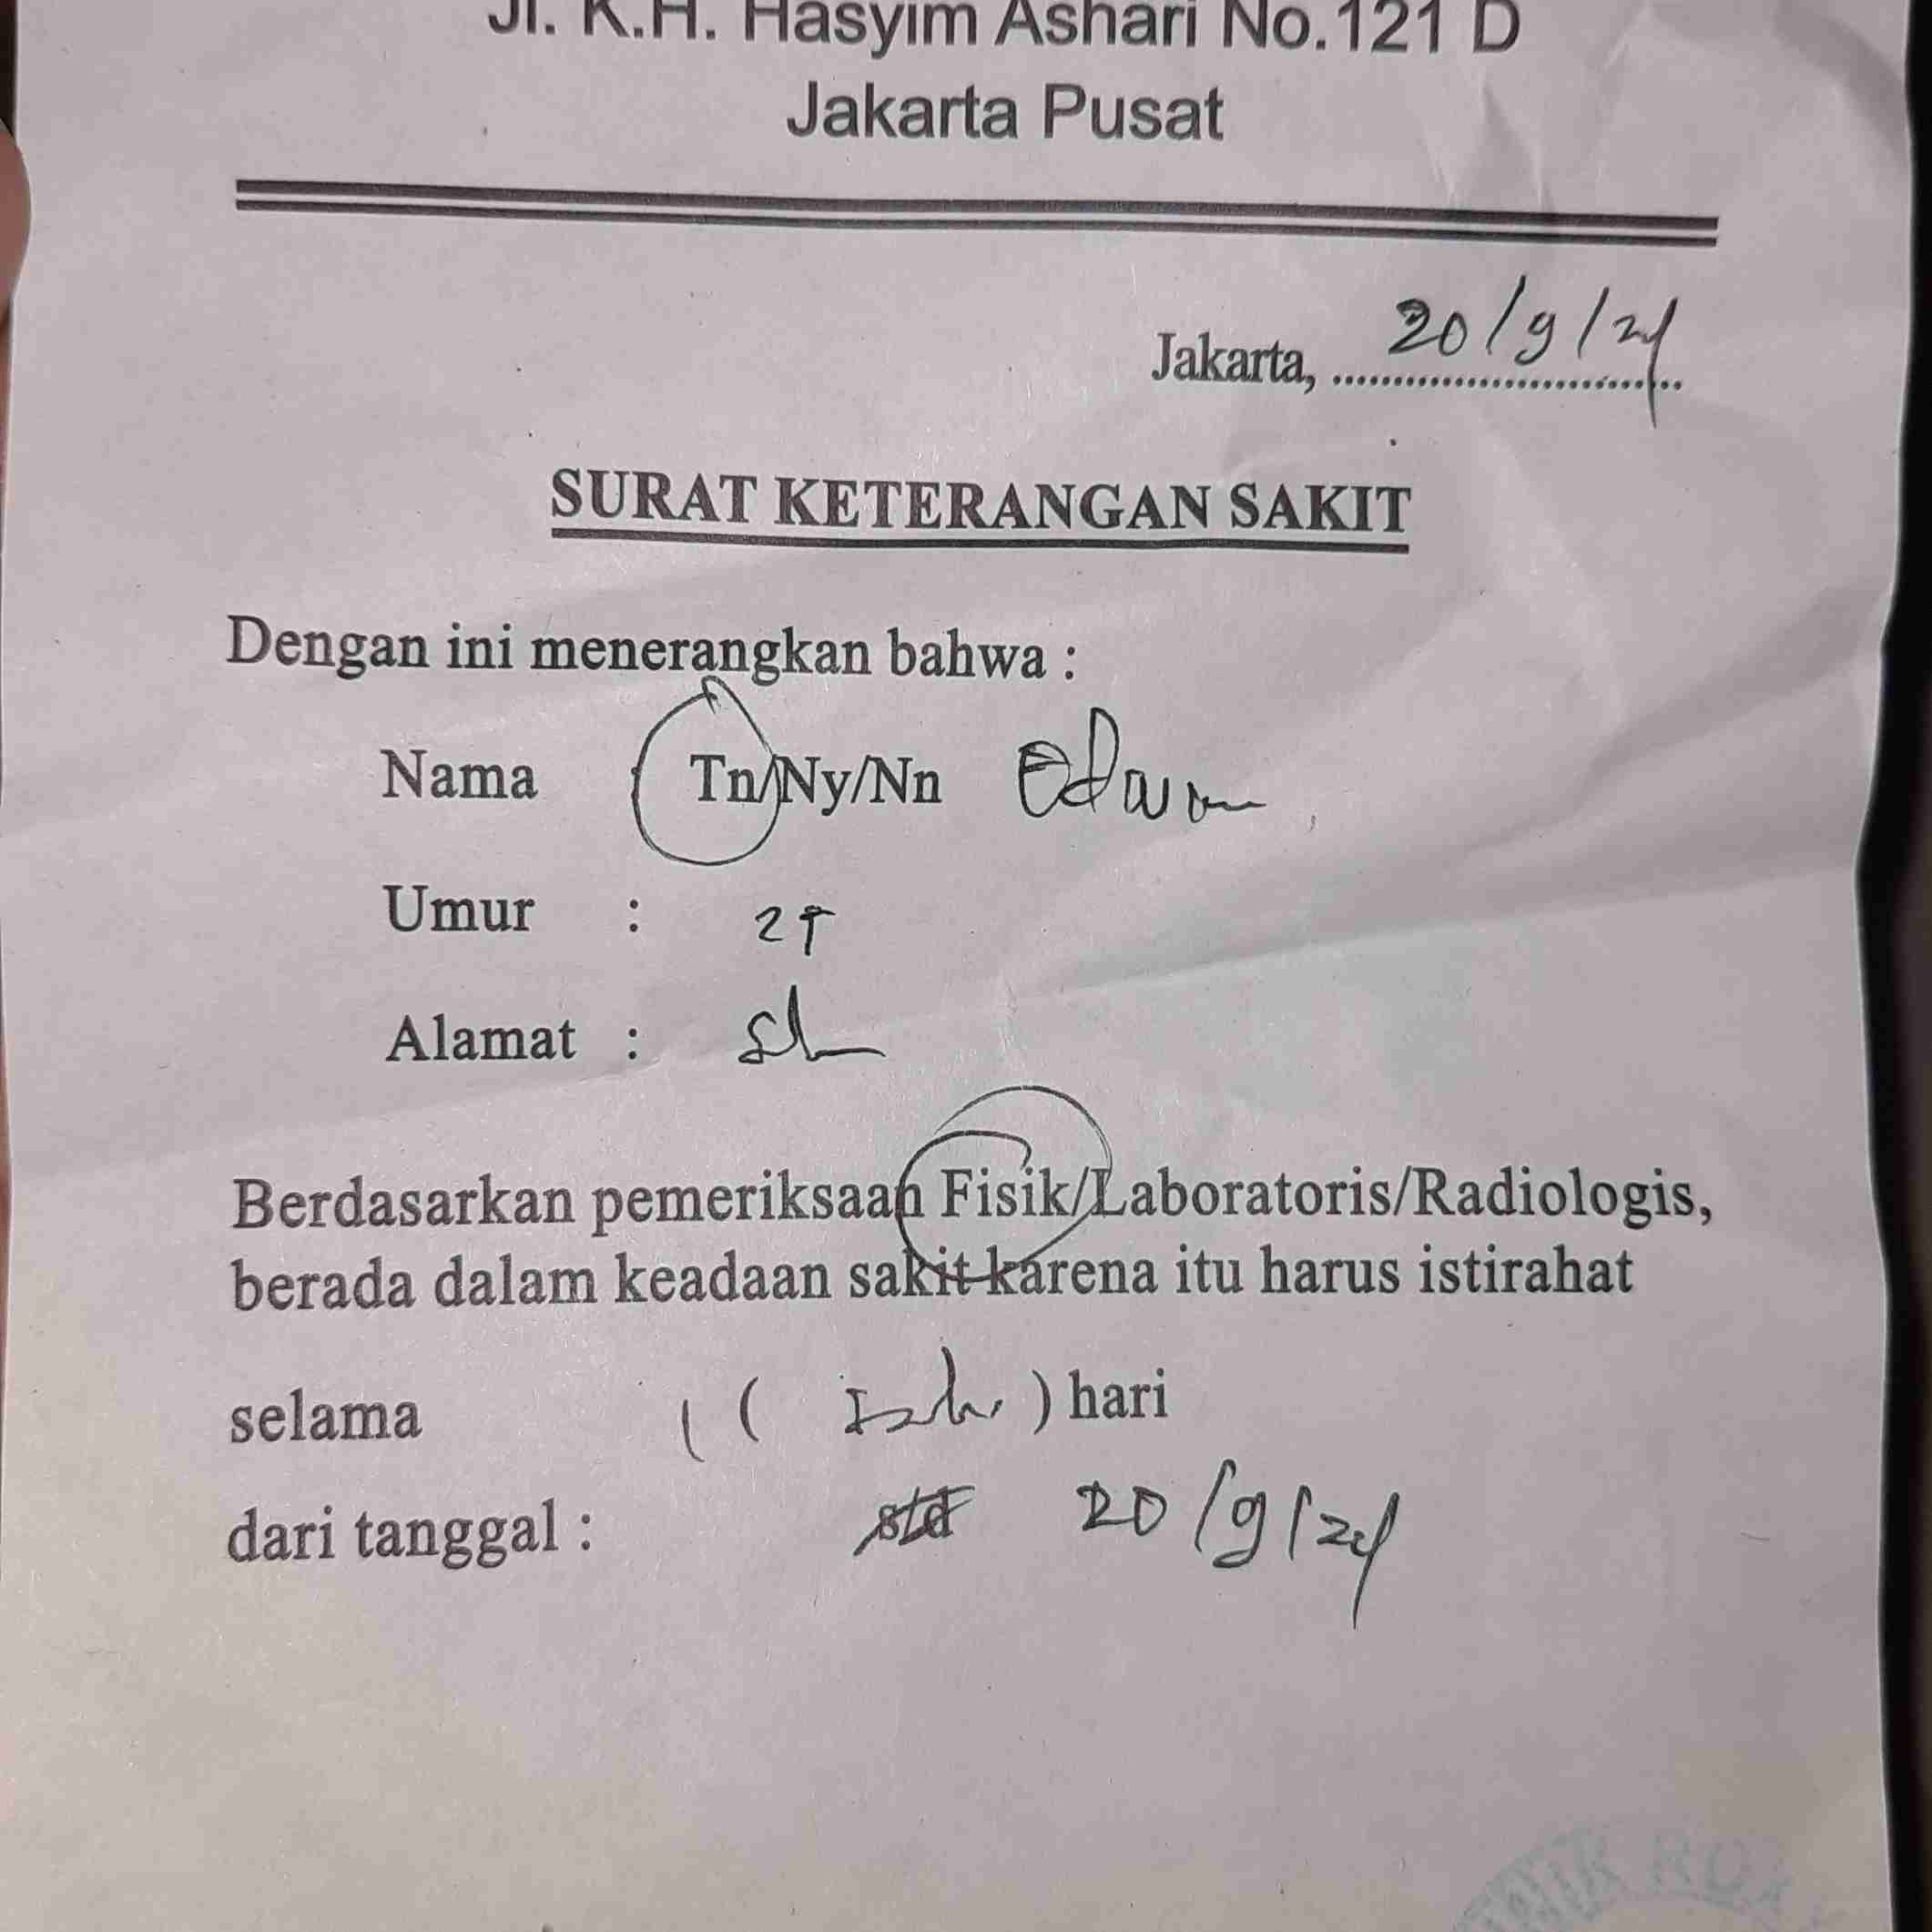 Jl. K.H. Hasyim Ashari No.121 D
Jakarta Pusat
Jakarta, 20/9/24
SURAT KETERANGAN SAKIT
Dengan ini menerangkan bahwa :
Nama : Tn/Ny/Nn
Umur :
Alamat :
Berdasarkan pemeriksaan Fisik/Laboratoris/Radiologis,
berada dalam keadaan sakit karena itu harus istirahat
selama 1 ( ) hari
dari tanggal : 20/9/24